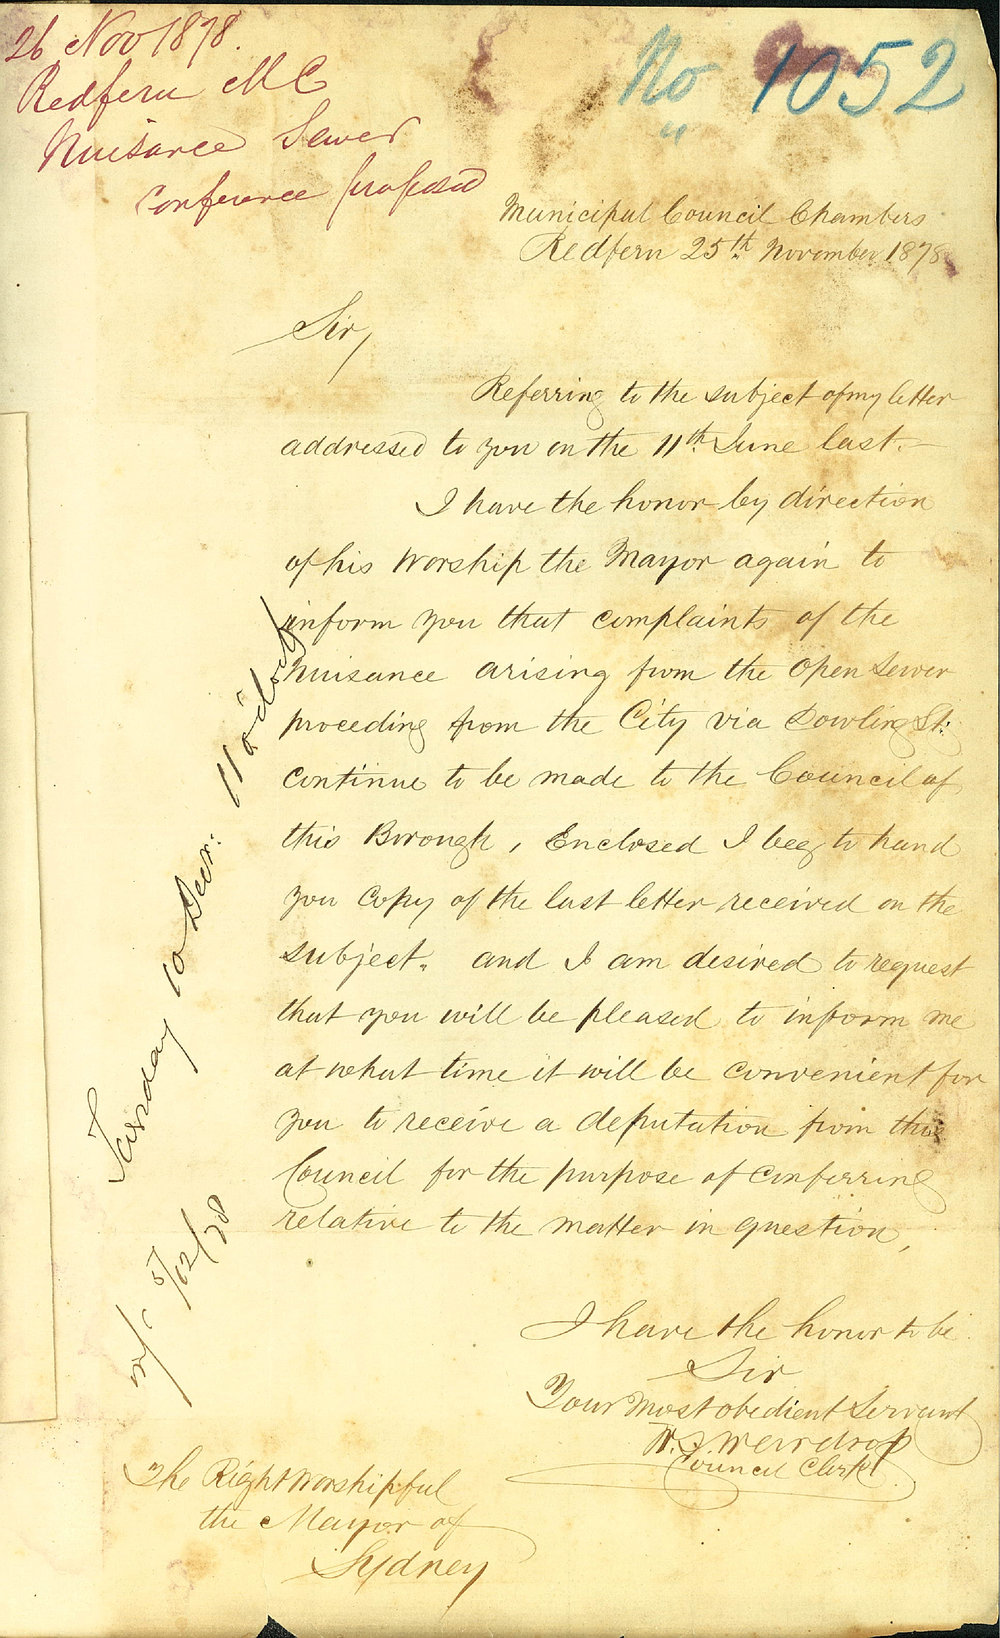 26 Nov 1878.
Redfern M C
Nuisance Sewer
Conference proposed
No 1052
Municipal Council Chambers
Redfern 25th November 1878
Sir,
Referring to the subject of my letter
addressed to you on the 11th June last.
I have the honor by direction
of his Worship the Mayor again to
inform you that complaints of the
Nuisance arising from the Open Sewer
proceding from the City via Dowling St:
continue to be made to the Council of
this Borough, Enclosed I beg to hand
you Copy of the last letter received on the
subject. and I am desired to request
that you will be pleased to inform me
at what time it will be convenient for
you to receive a deputation from this
Council for the purpose of Conferring
relative to the matter in question,
I have the honor to be
Sir
Your most obedient Servant
Council Clerk
The Right Worshipful
the Mayor of
Sydney
Tuesday 10 Decr: 11 o'clock
5/12/78